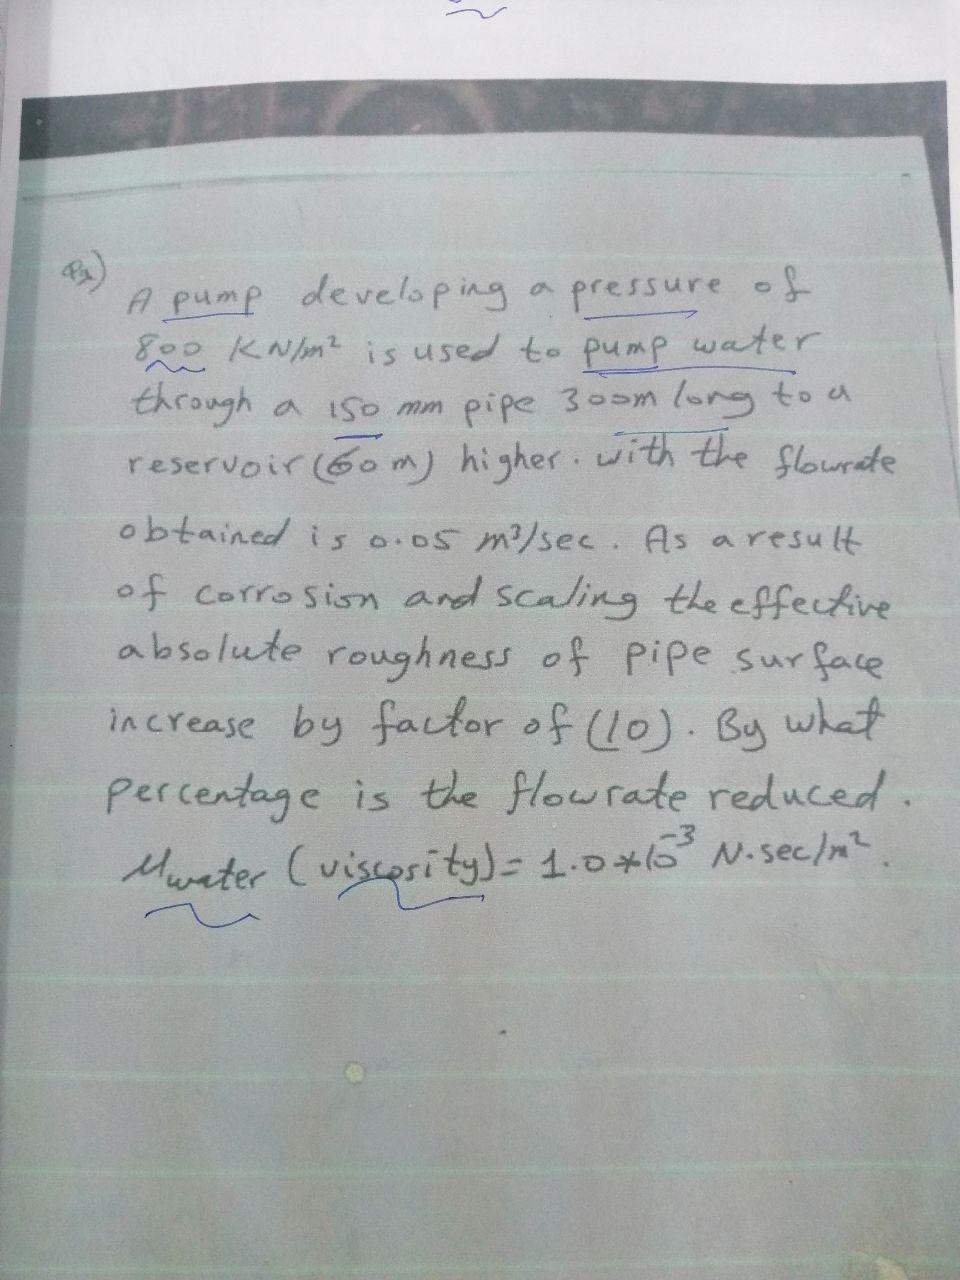 A pump developing a pressure of
800 KN/m² is used to pump water
through a 150 mm pipe 300m long to a
reservoir (60m) higher. with the flowrate
obtained is 0.05 m³/sec. As a result
of corrosion and scaling the effective
absolute roughness of pipe surface
increase by factor of (10). By what
percentage is the flowrate reduced.
Mwater (viscosity) = 1.0*10⁻³ N.sec/m².